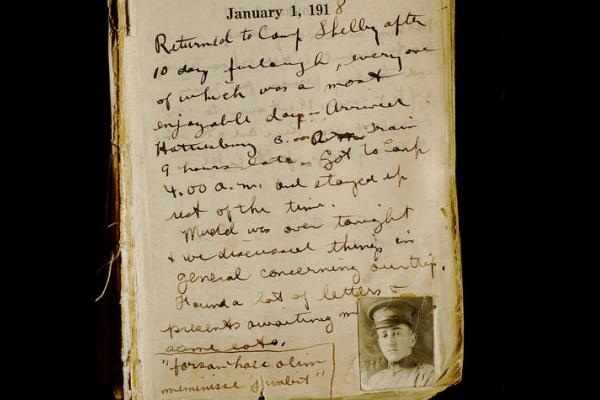 January 1, 1918
Returned to Camp Shelby after
10 day furlough, everyone
of which was a most
enjoyable day - Arrived
Hattiesburg 3. - A.M. Train
9 hours late - Got to Camp
4.00 a.m. and stayed up
rest of the time.
Mudd was over tonight
& we discussed things in
general concerning our trip.
Found a lot of letters &
presents awaiting
some eats.
"forsan haec olim
meminisse